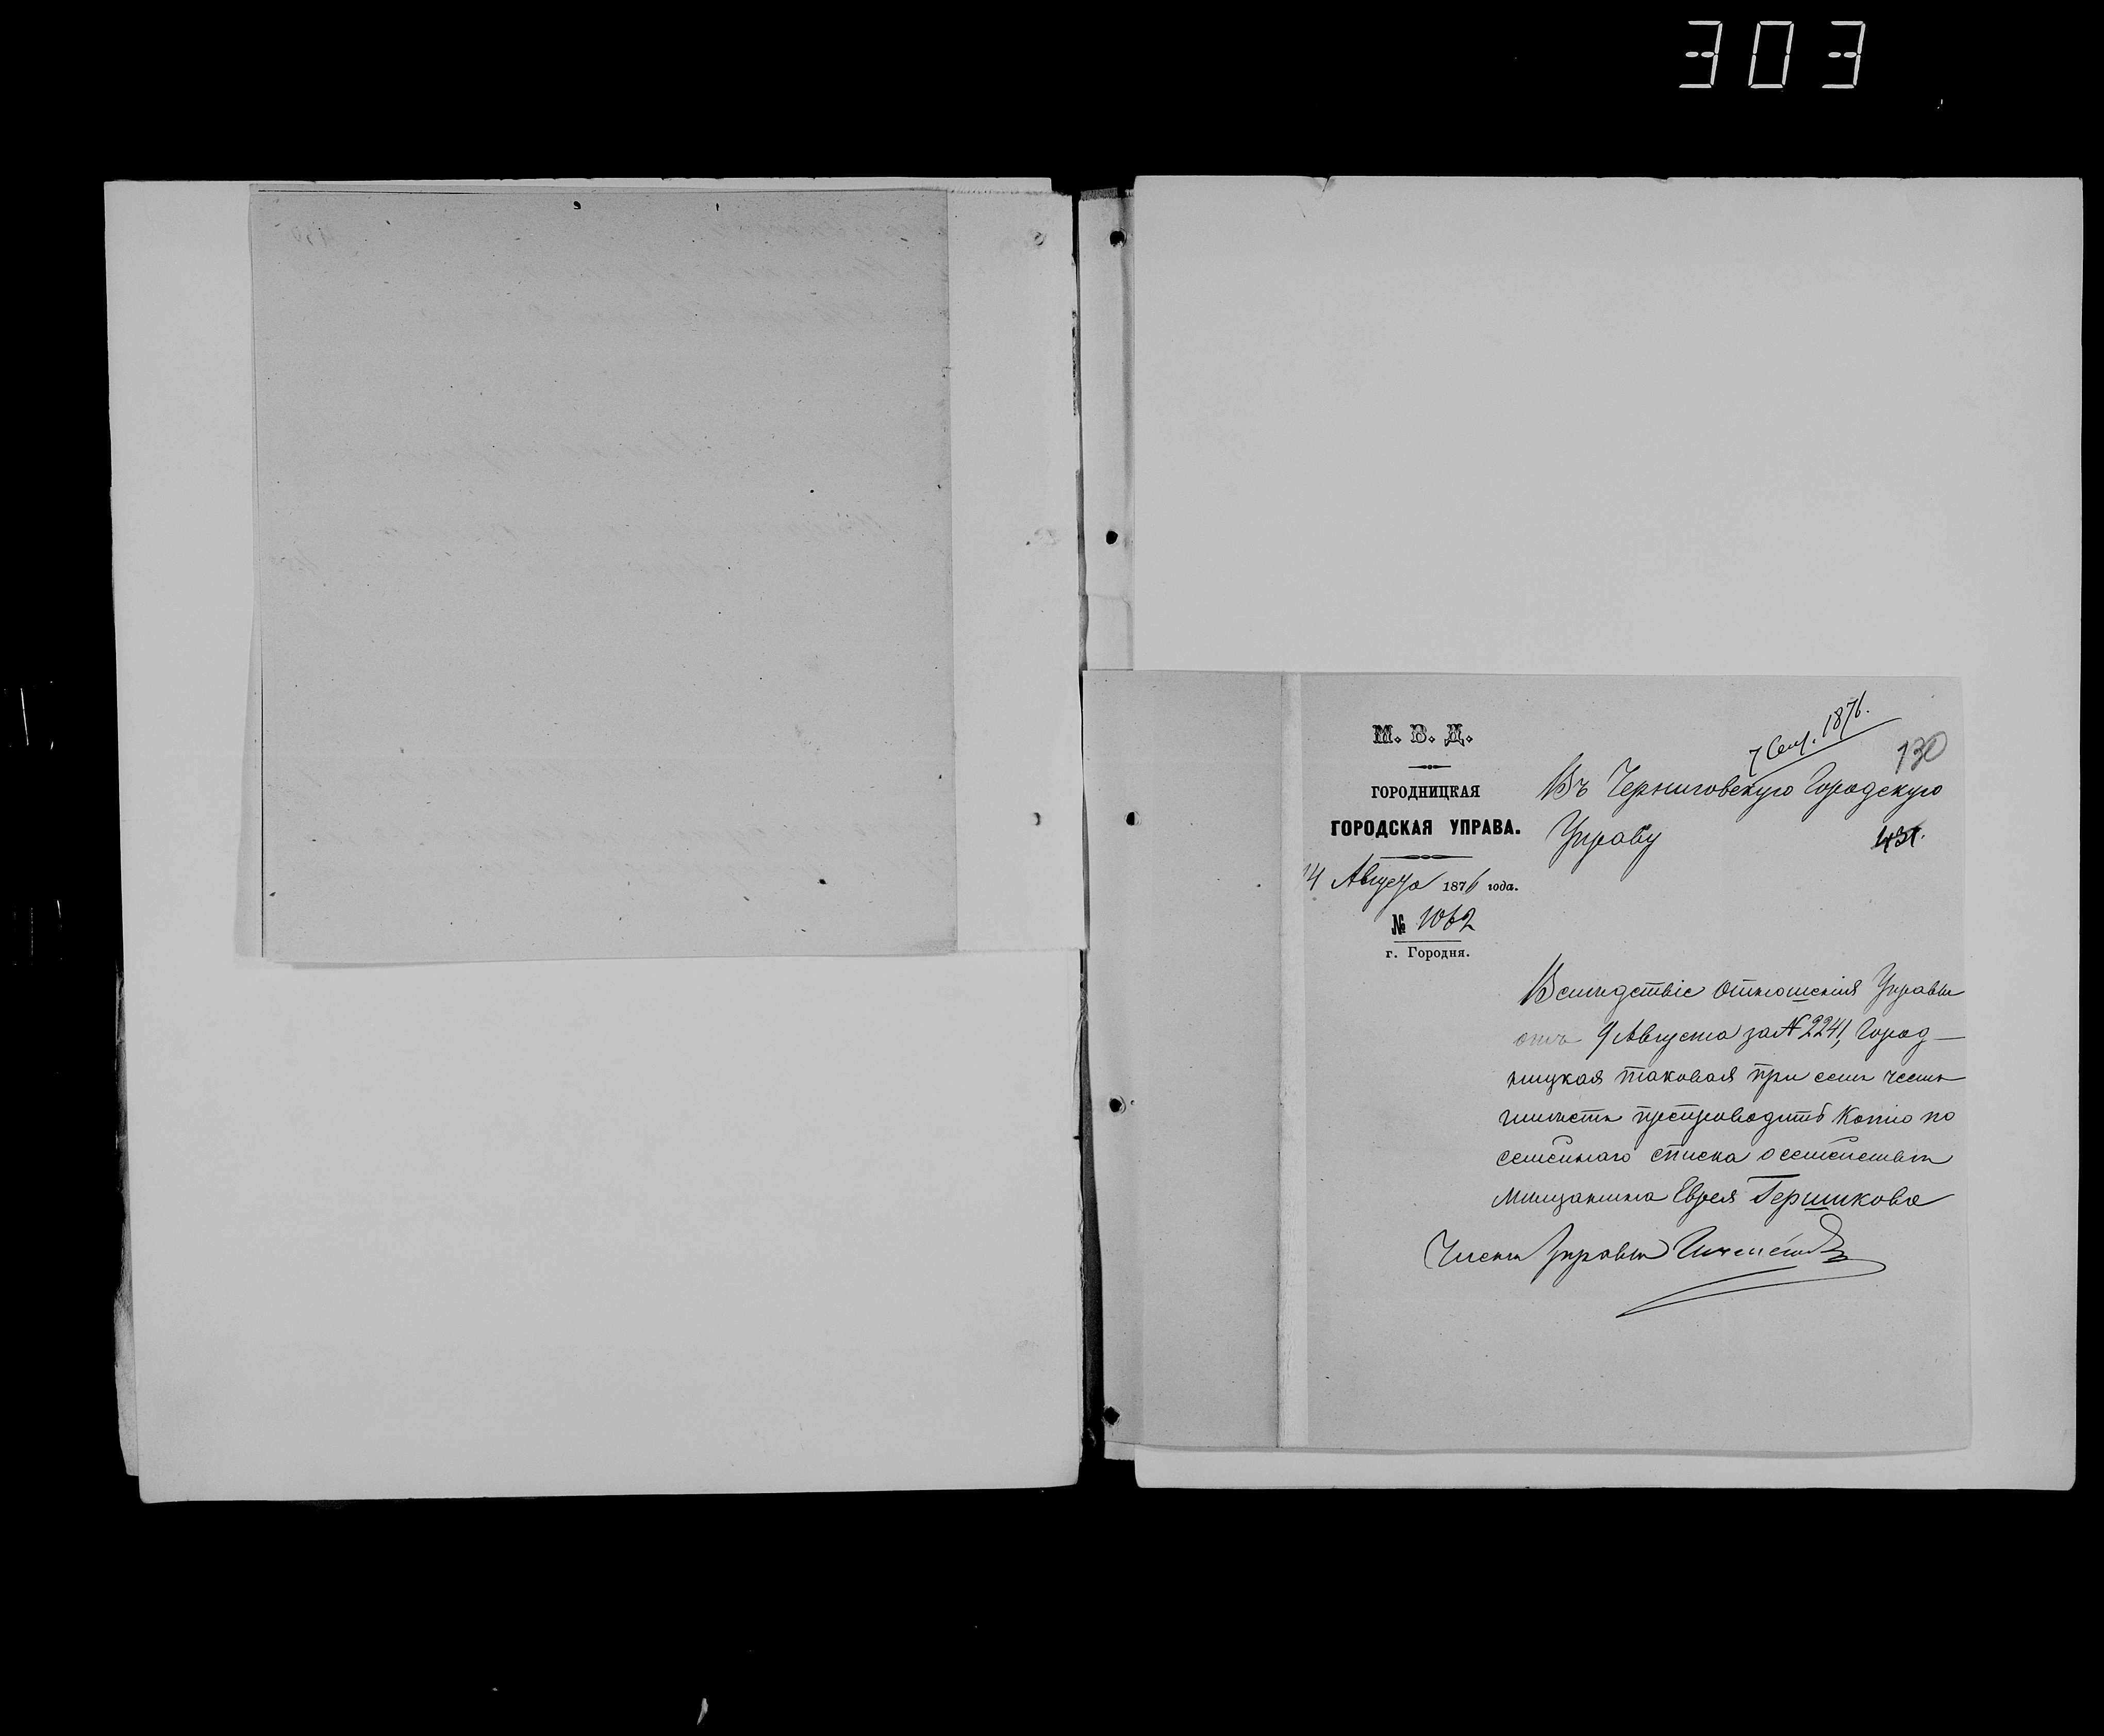 303
М. В. Д.
ГОРОДНИЦКАЯ
ГОРОДСКАЯ УПРАВА.
14 Августа 1876 года.
№ 1062
г. Городня.
7 Сент. 1876.
130
Въ Черниговскую Городскую
Управу
431.
Вслѣдствіе отношенія Управы
отъ 9 Августа за № 2241, Город-
ницкая таковая при семъ честь
имѣетъ препроводить копію по
семейнаго списка о семействѣ
Мѣщанина Еврея Гершкова
Членъ Управы